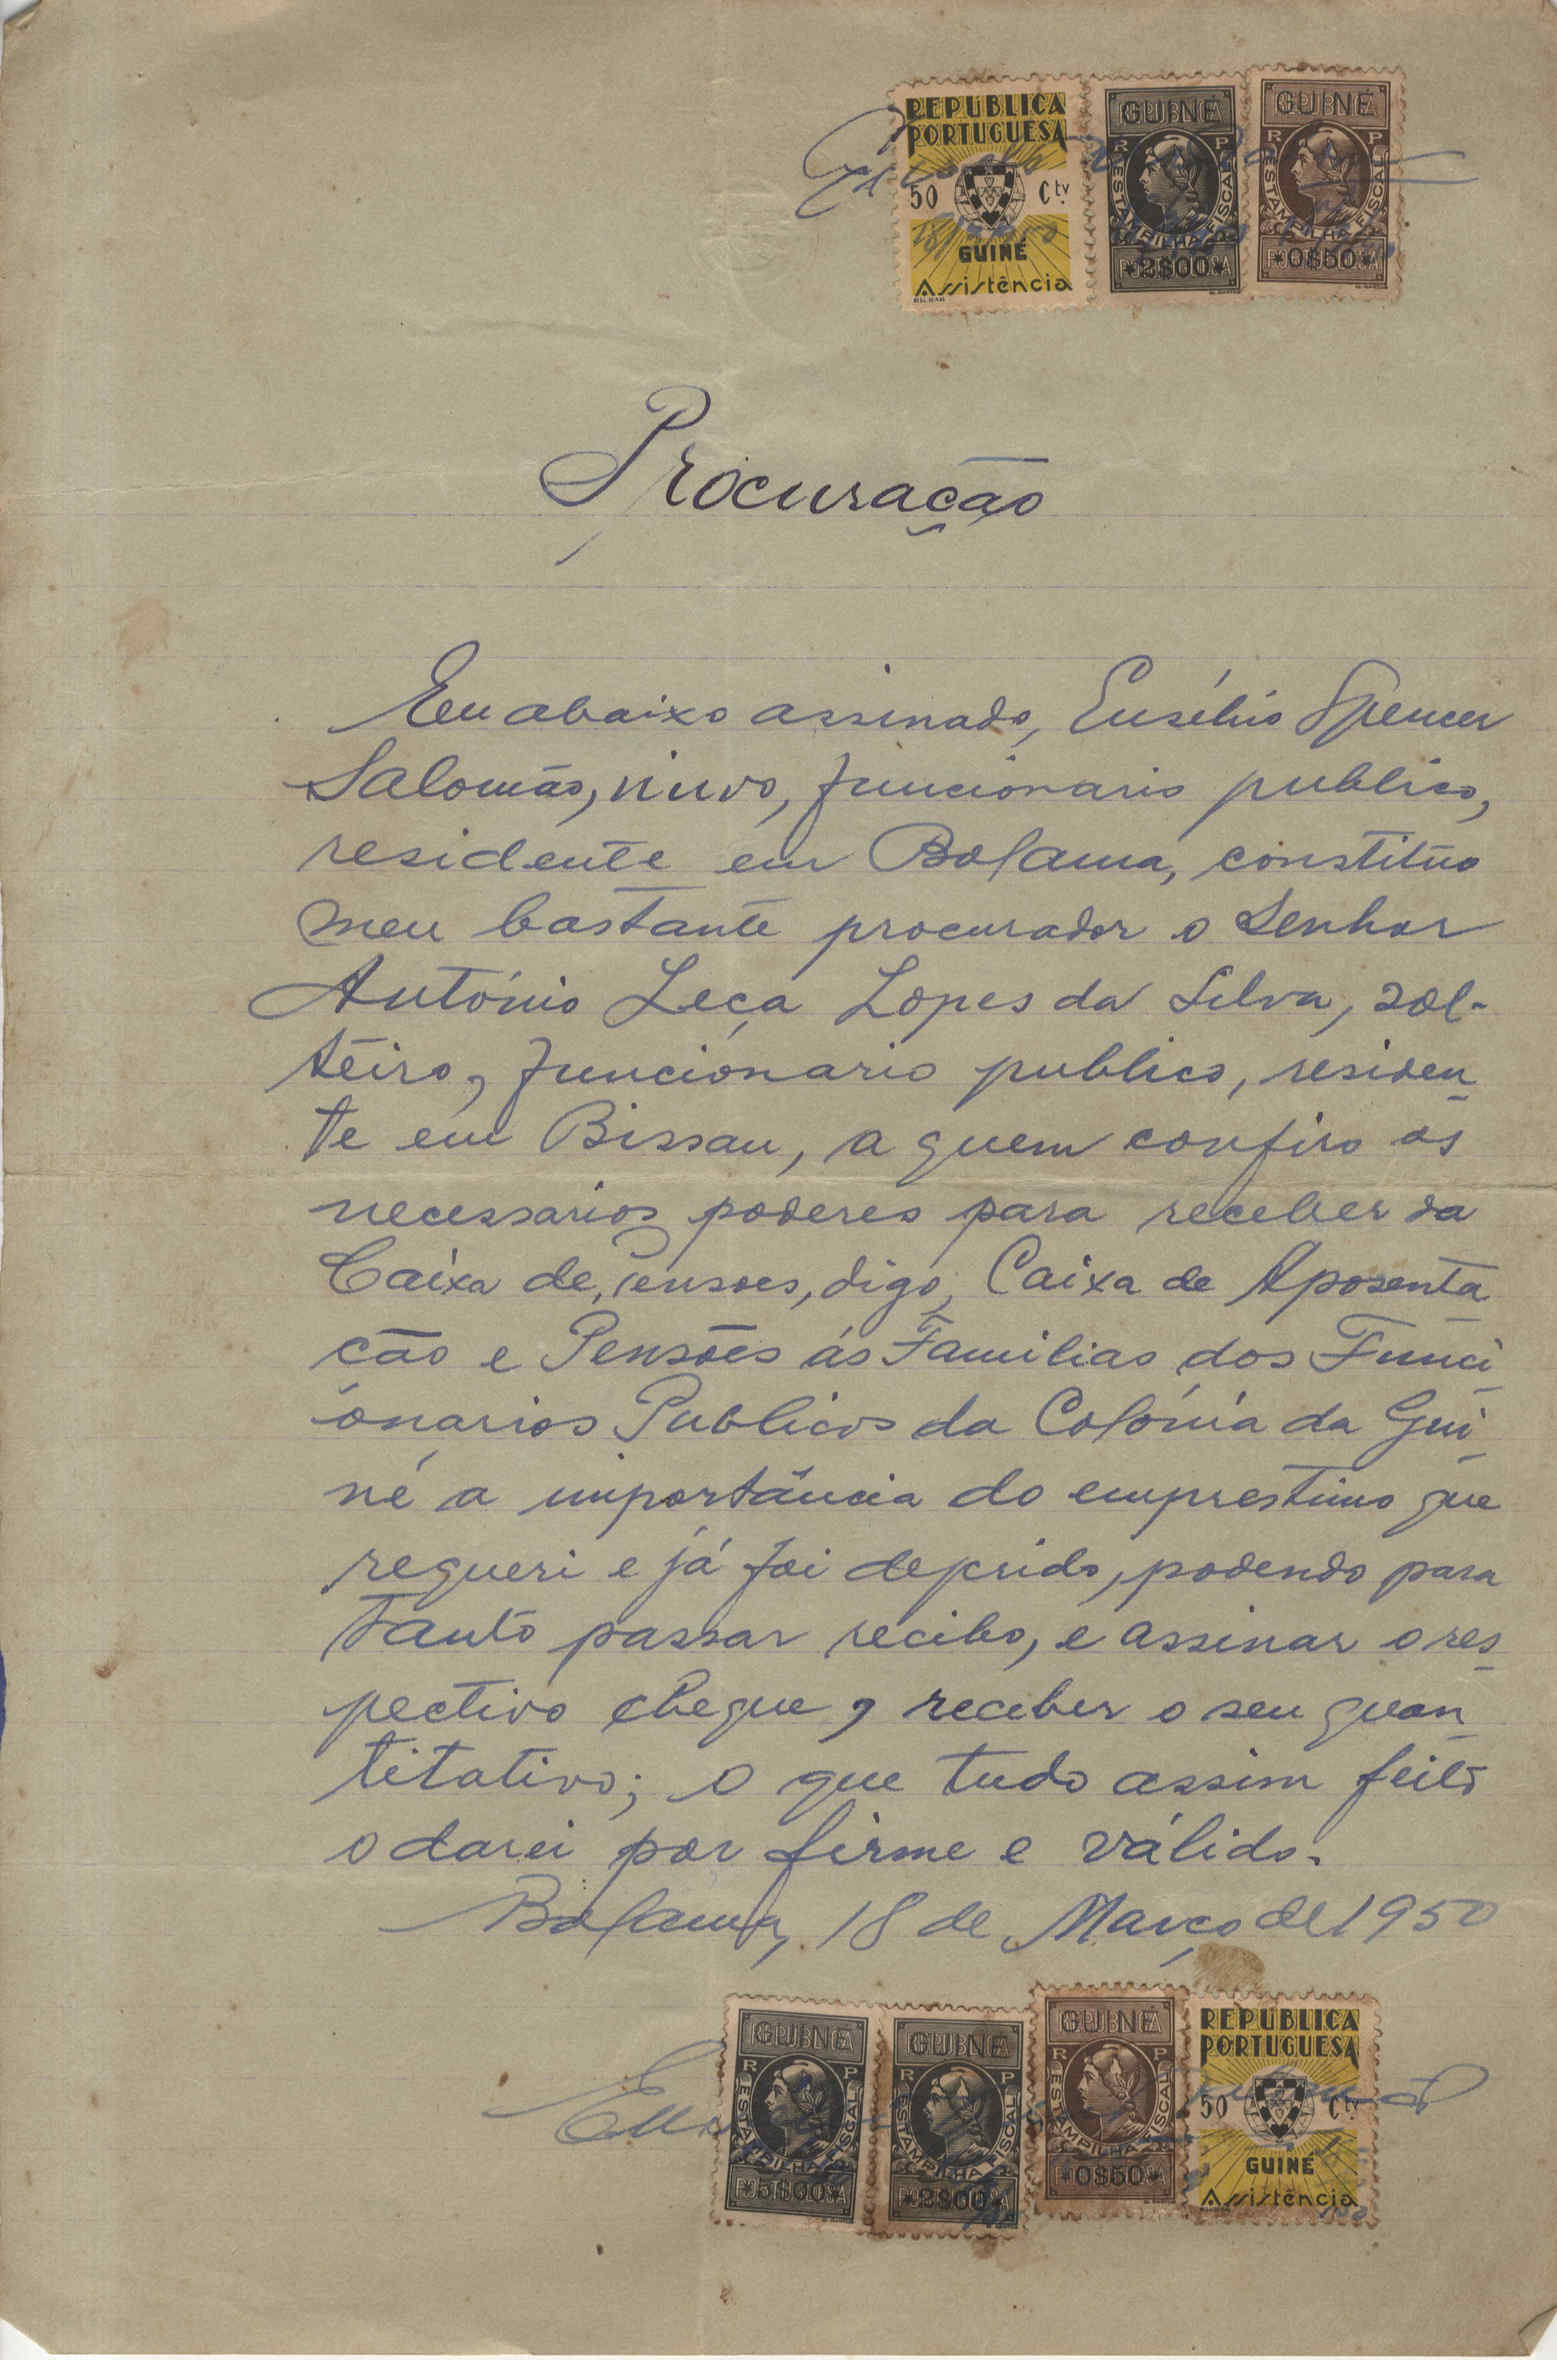 REPUBLICA
PORTUGUESA
50 Ctv
GUINÉ
Assistência
GUINÉ
R P
ESTAMPILHA FISCAL
*2$00*
GUINÉ
R P
ESTAMPILHA FISCAL
*0$50*
Procuração
Eu abaixo assinado, Eusébio Spencer
Salomão, viuvo, funcionario publico,
residente em Bolama, constitúo
meu bastante procurador o Senhor
António Leça Lopes da Silva, sol-
teiro, funcionario publico, residen
te em Bissau, a quem confiro os
necessarios poderes para receber da
Caixa de, Pensoes, digo, Caixa de Aposenta
ção e Pensões ás Familias dos Funci
onarios Publicos da Colónia da Gui
né a importância do emprestimo que
requeri e já foi deferido, podendo para
tanto passar recibo, e assinar o res
pectivo cheque, receber o seu quan
titativo; o que tudo assim feito
o darei por firme e válido.
Bolama, 18 de Março de 1950
GUINÉ
R P
ESTAMPILHA FISCAL
*5$00*
GUINÉ
R P
ESTAMPILHA FISCAL
*2$00*
GUINÉ
R P
ESTAMPILHA FISCAL
*0$50*
REPUBLICA
PORTUGUESA
50 Ctv
GUINÉ
Assistência